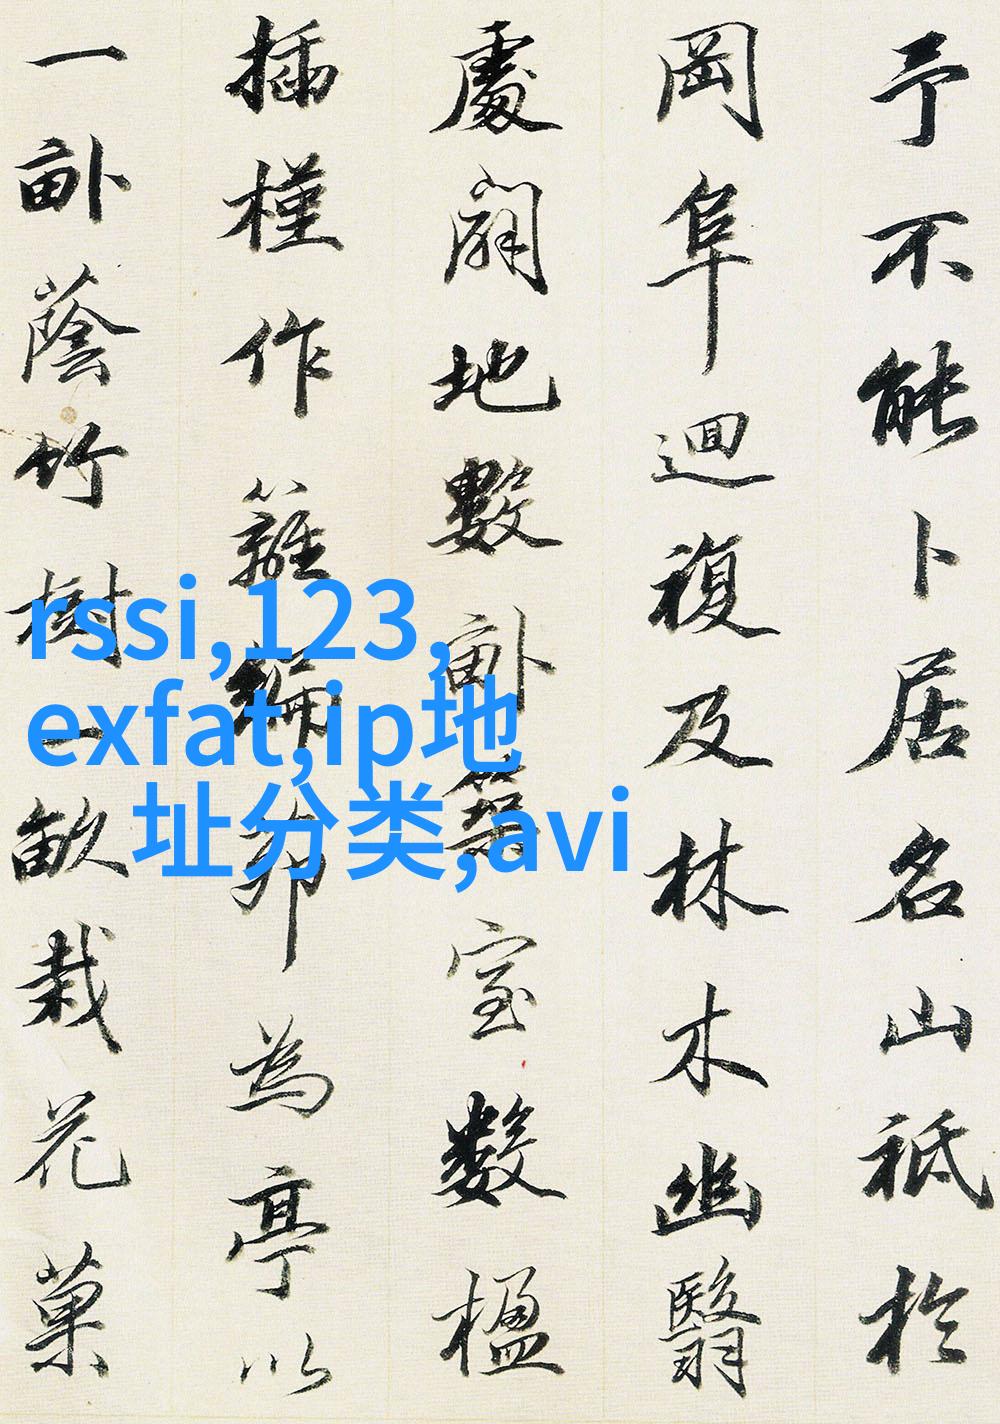 予不能卜居名山祗於
岡阜迴複及林木幽翳
處闢地數畝築室數楹
插槿作籬編茆為亭以
一畝蔭竹樹一畝栽花菓
rssi,123,
exfat,ip地
址分类,avi